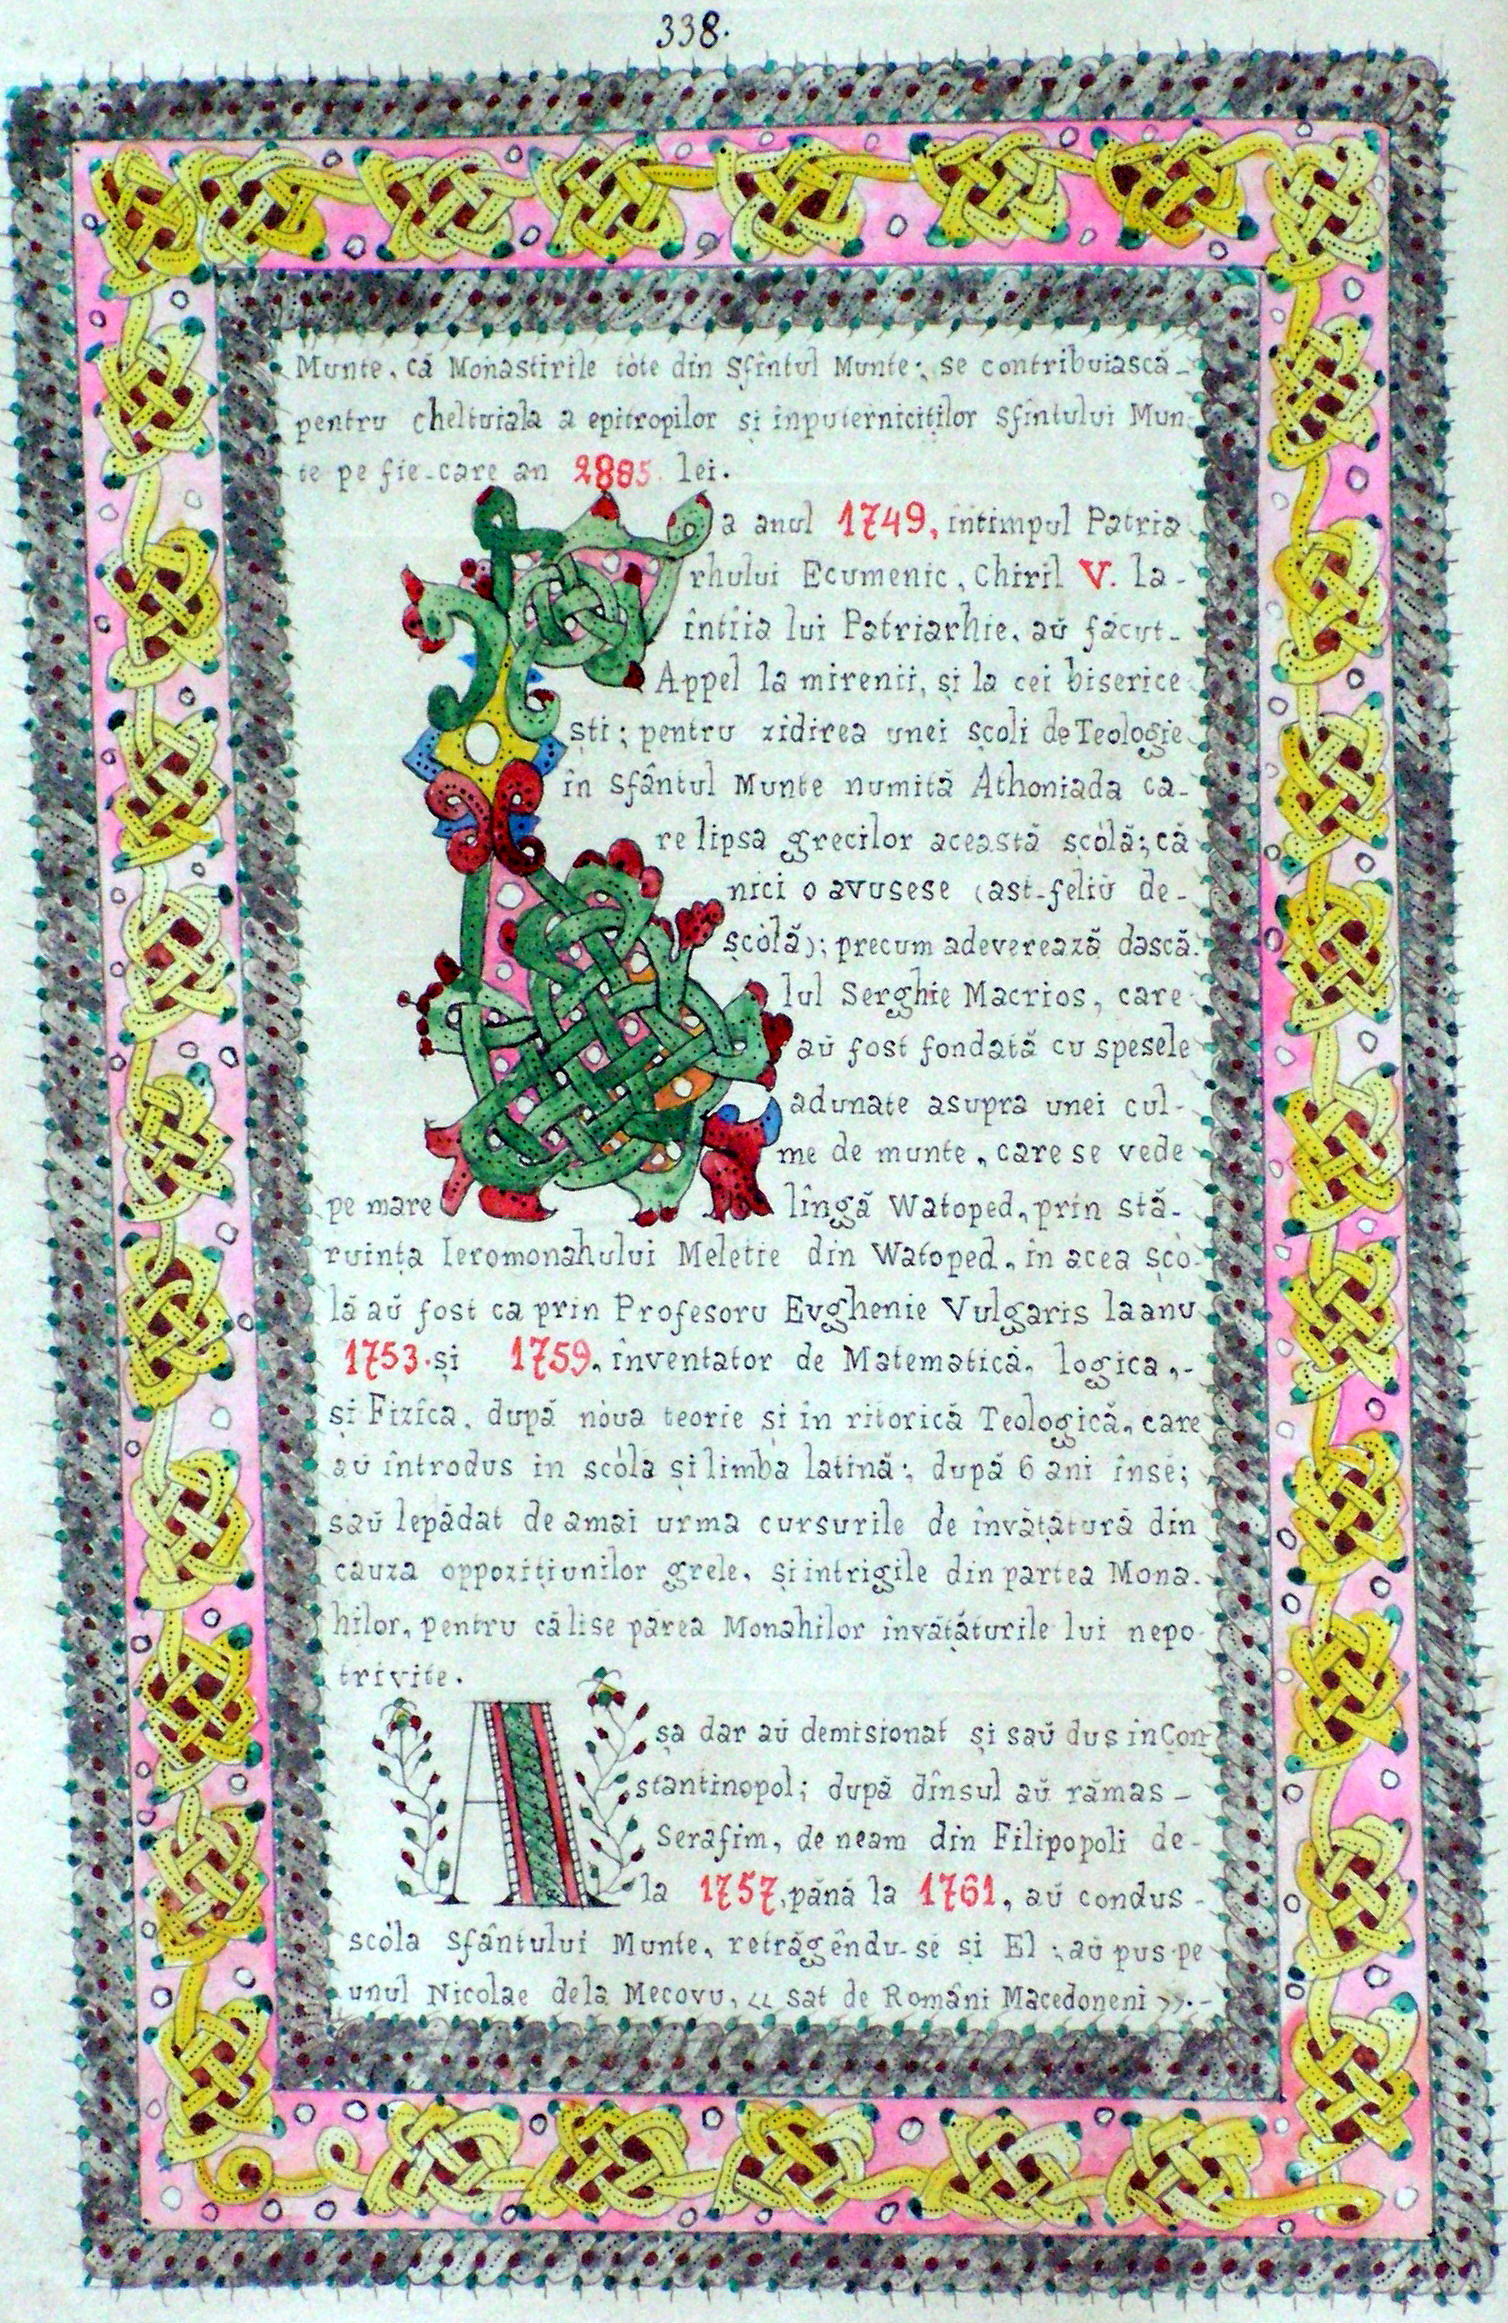 338.
Munte, că Monastirile tòte din Sfîntul Munte; se contribuiască-
pentru cheltuiala a epitropilor și înputerniciților Sfîntului Mun-
te pe fie-care an 2885. lei.
La anul 1749, intimpul Patria
rhului Ecumenic, Chiril V. la-
întîia lui Patriarhie, aŭ făcut-
Appel la mirenii, și la cei biserice
ști; pentru zidirea unei școli de Teologie
în Sfântul Munte numită Athoniada ca-
re lipsa grecilor această școlă; că
nici o avusese (ast-feliŭ de-
școlă); precum adeverează dască-
lul Serghie Macrios, care
aŭ fost fondată cu spesele
adunate asupra unei cul-
me de munte, care se vede
pe mare lîngă Watoped, prin stă-
ruința Ieromonahului Meletie din Watoped, in acea șcò-
lă aŭ fost ca prin Profesoru Evghenie Vulgaris la anu
1753. și 1759, înventator de Matematică, logica,-
și Fizîca, după nòua teorie și în ritorică Teologică, care
aŭ întrodus in scóla și limba latină; după 6 ani însé;
saŭ lepădat de amai urma cursurile de învățătură din
cauza oppozițiunilor grele, și intrigile din partea Mona-
hilor, pentru că lise părea Monahilor învățăturile lui nepo
trivite.
Așa dar aŭ demisionat și saŭ dus in Con
stantinopol; după dînsul aŭ rămas-
Serafim, de neam din Filipopoli de-
la 1757, până la 1761, aŭ condus-
scóla Sfântului Munte, retrăgêndu-sé și El; aŭ pus pe
unul Nicolae dela Mecovu, << sat de Români Macedoneni >>.-